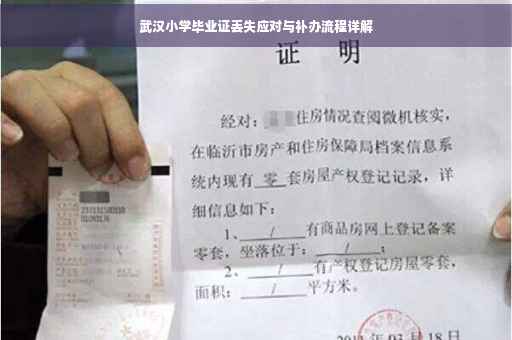 武汉小学毕业证丢失应对与补办流程详解
证 明
经对：住房情况查阅微机核实，
在临沂市房产和住房保障局档案信息系
统内现有 零 套房屋产权登记记录，详
细信息如下：
1、 / 有商品房网上登记备案
零套，坐落位于： / ；
2、 / 有产权登记房屋零套，
面积： / 平方米。
03月18日